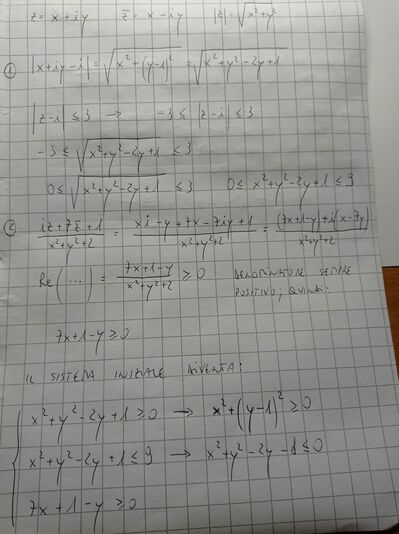 z = x + iy   z̅ = x - iy   |z| = √(x²+y²)
① |x+iy-i| = √(x²+(y-1)²) = √(x²+y²-2y+1)
|z-i| ≤ 3 → -3 ≤ |z-i| ≤ 3
-3 ≤ √(x²+y²-2y+1) ≤ 3
0 ≤ √(x²+y²-2y+1) ≤ 3   0 ≤ x²+y²-2y+1 ≤ 9
② (iz+7z̅+1)/(x²+y²+2) = (xi-y+7x-7iy+1)/(x²+y²+2) = ((7x+1-y)+i(x-7y))/(x²+y²+2)
Re(...) = (7x+1-y)/(x²+y²+2) ≥ 0   DENOMINATORE SEMPRE
POSITIVO, QUINDI:
7x+1-y ≥ 0
IL SISTEMA INIZIALE DIVENTA:
x²+y²-2y+1 ≥ 0 → x²+(y-1)² ≥ 0
x²+y²-2y+1 ≤ 9 → x²+y²-2y-8 ≤ 0
7x+1-y ≥ 0